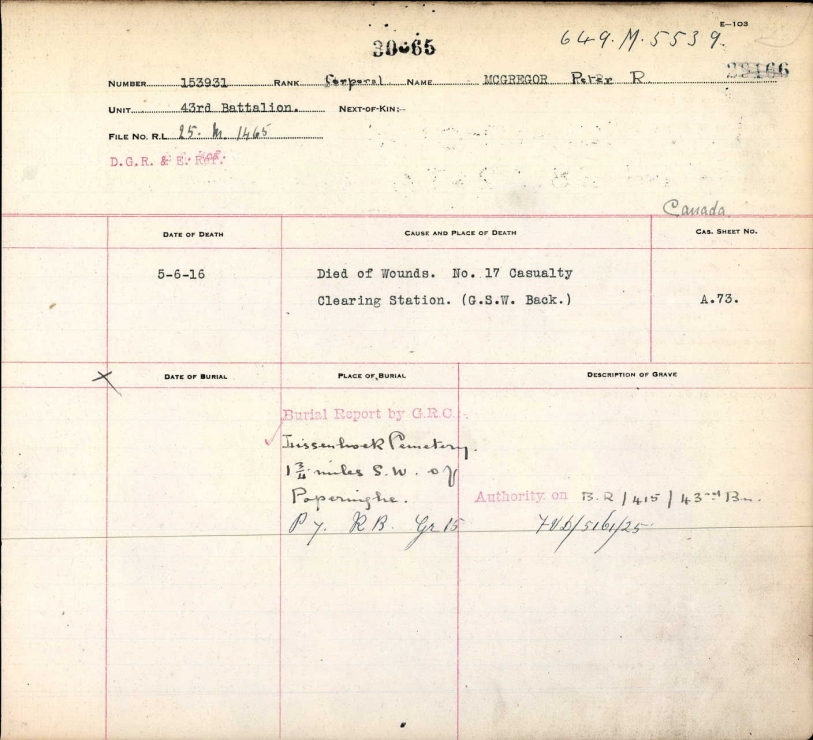 E—103
649.M.5539.
30665
23166
NUMBER 153931 RANK Corporal NAME MCGREGOR Peter R.
UNIT 43rd Battalion. NEXT-OF-KIN:-
FILE NO. R.L. 25. M. 1465
D.G.R. & E. Ref.
Canada
DATE OF DEATH CAUSE AND PLACE OF DEATH CAS. SHEET NO.
5-6-16 Died of Wounds. No. 17 Casualty
Clearing Station. (G.S.W. Back.) A.73.
X DATE OF BURIAL PLACE OF BURIAL DESCRIPTION OF GRAVE
Burial Report by G.R.C.:-
Lissenhoek Cemetery.
1 3/4 miles S.W. of
Poperinghe.
Authority on B.R/415/43rd Bn.
P 7. R B. Gr 15